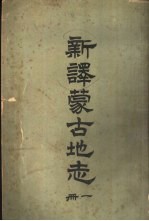 新譯蒙古地志
一册